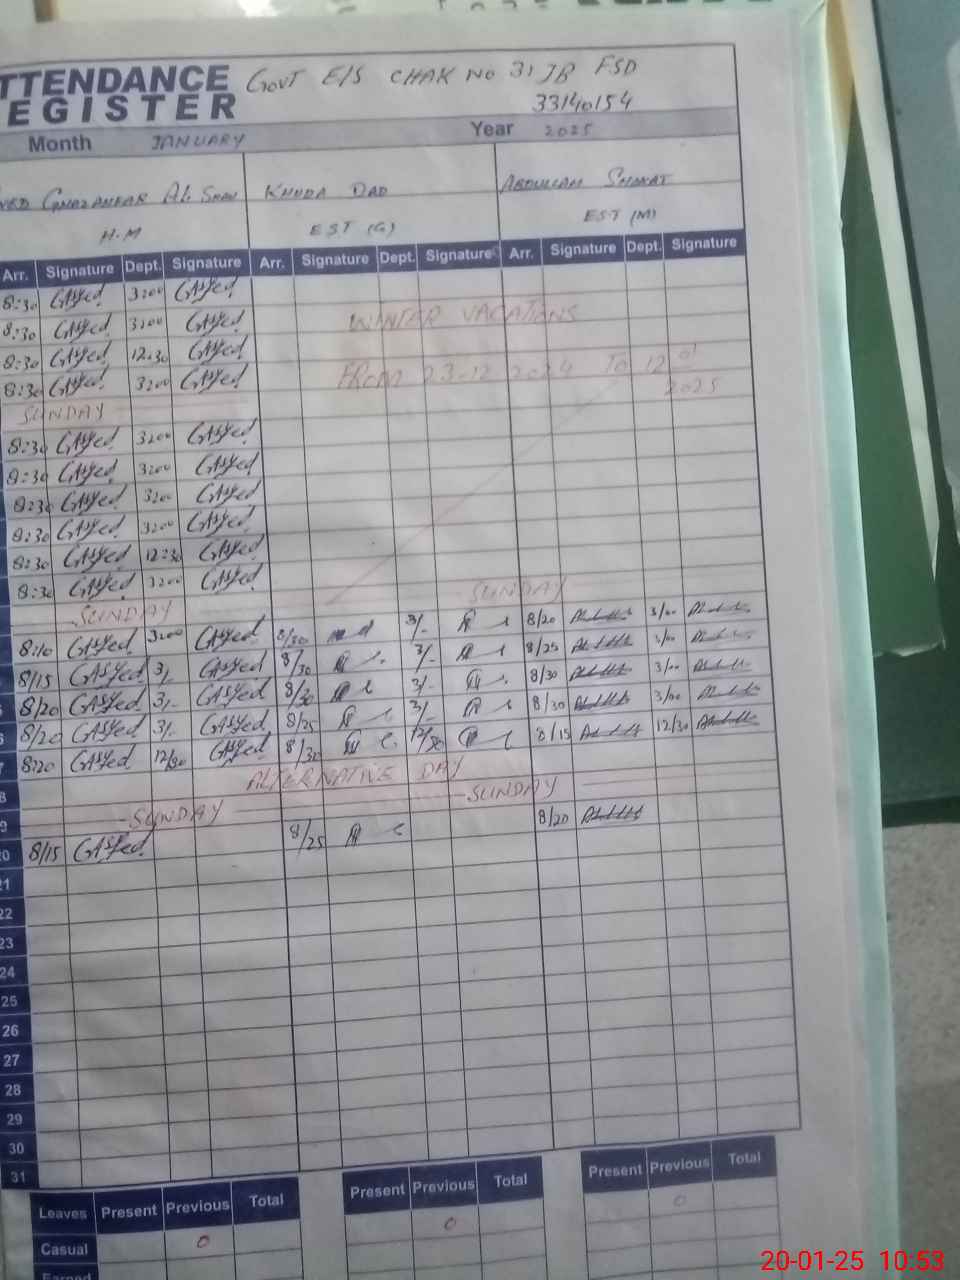 TTENDANCE GOVT E/S CHAK NO 31 JB FSD
EGISTER 33140154
Month JANUARY Year 2025
GHAZANFAR ALI SHAH KHUDA DAD ABDULLAH SHOKAT
H.M E.S.T (G) E.S.T (M)
Arr. Signature Dept. Signature Arr. Signature Dept. Signature Arr. Signature Dept. Signature
8:30 GASyed 3200 GASyed
8:30 GASyed 3200 GASyed WINTER VACATIONS
8:30 GASyed 12:30 GASyed
8:30 GASyed 3200 GASyed FROM 23-12 2024 TO 12 01
2025
SUNDAY
8:30 GASyed 3200 GASyed
8:30 GASyed 3200 GASyed
8:30 GASyed 3200 GASyed
8:30 GASyed 3200 GASyed
8:30 GASyed 12:30 GASyed
8:30 GASyed 3200 GASyed
SUNDAY SUNDAY
8:10 GASyed 3200 GASyed 8/30 3/- 8/20 3/00
8/15 GASyed 3/- GASyed 8/30 3/- 8/25 3/00
8/20 GASyed 3/- GASyed 8/30 3/- 8/30 3/00
8/20 GASyed 3/- GASyed 8/25 3/- 8/30 3/00
8:20 GASyed 12/30 GASyed 8/30 12/30 8/15 12/30
8 ALTERNATIVE DAY
9 SUNDAY SUNDAY
20 8/15 GASyed 8/25 8/20
21
22
23
24
25
26
27
28
29
30
31
Leaves Present Previous Total Present Previous Total Present Previous Total
Casual 0 0 0
Earned
20-01-25 10:53